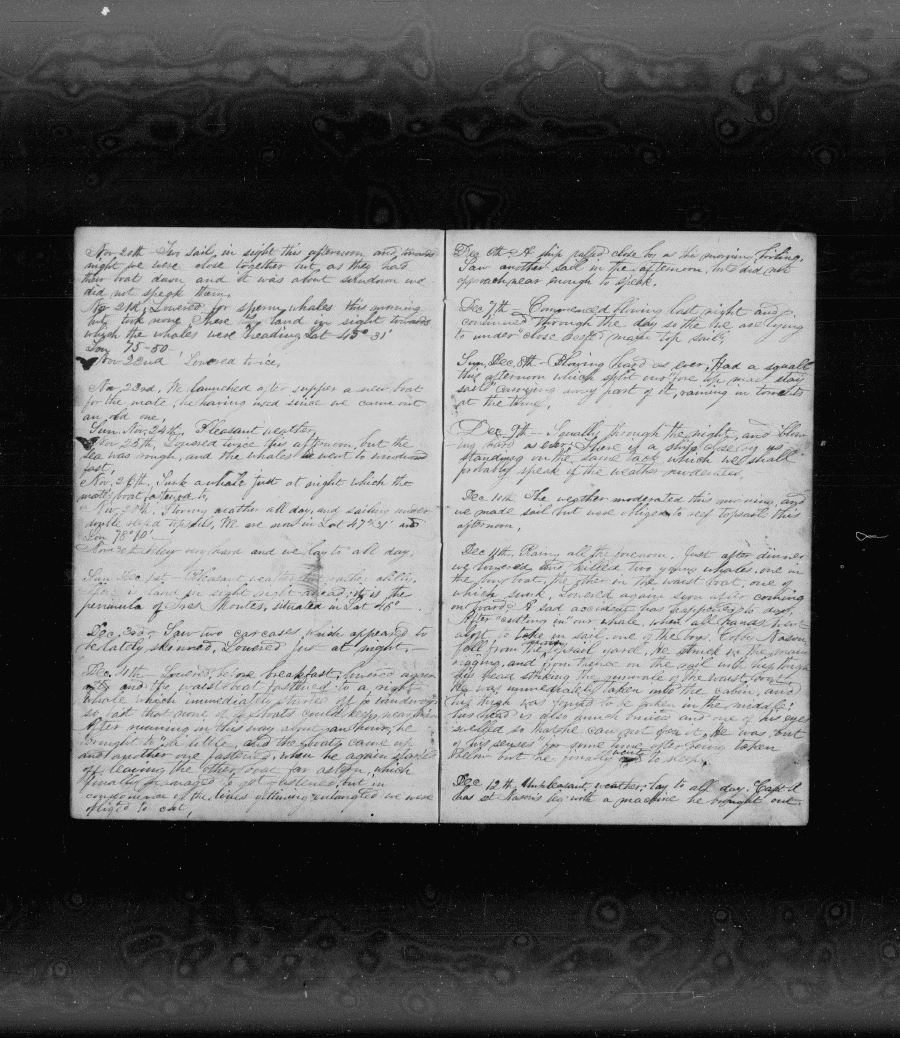 Nov 20th Two sail in sight this afternoon and towards
night we were close together but as they had
their boat down and it was about sundown we
did not speak them.
Nov 21st, Lowered for sperm whales this morning
but took none There is land in sight towards
which the whales were heading Lat 45° 31'
Lon 75-50
Nov 22nd Lowered twice,
Nov, 23rd, We launched after supper a new boat
for the mate, he having used since we came out
an old one,
Sun. Nov, 24th, Pleasant weather,
Nov 25th, Lowered twice this afternoon, but the
sea was rough, and the whales went to windward
fast,
Nov, 26th, Sunk a whale just at night which the
mate's boat fastened to,
Nov 27th, Strong weather all day, and sailing under
double reefed topsails, We are now in Lat 47° 31' and
Lon 78° 10'
very hard and we lay to all day,
Sun Dec 1st Pleasant weather
is land in sight right ahead, It is the
peninsula of Tres Montes, situated in Lat 46°
Dec, 3rd, Saw two carcases which appeared to
be lately skinned, Lowered just at night,
Dec, 4th Lowered before breakfast, lowered again
and the waist boat fastened to a right
whale which immediately started off to windward
so fast that none of the boats could keep near him
After running in this way about an hour, he
brought to a little, and the boats came up
and another one fastened, when he again started
off leaving the other boat far astern, which
finally managed to get fastened, but in
consequence of the lines getting entangled we were
obliged to cut,
Dec 6th A ship passed close by us this morning, boiling,
Saw another sail in the afternoon, but did not
approach near enough to speak,
Dec 7th Commenced blowing last night and
continued through the day so that we are lying
to under close reefed main top sail,
Sun, Dec, 8th Blowing hard as ever, Had a squall
this afternoon which split our fore top mast stay
sail carrying away part of it, raining in torrents
at the time,
Dec 9th Squally through the night, and blow-
ing hard as ever, There is a ship close by us
standing on the same tack which we shall
probably speak if the weather moderates,
Dec 10th The weather moderated this morning, and
we made sail but were obliged to reef topsail this
afternoon,
Dec 11th, Rainy all the forenoon, Just after dinner
we lowered and killed two young whales, one in
the boat, the other in the waist boat, one of
which sunk, Lowered again soon after coming
on board, A sad accident has happened to day,
After "cutting in" our whale, when all hands went
aloft to take in sail, one of the boys
fell from the topsail yard, he struck in the main
rigging, and from thence on the rail with his thigh
his head striking the gunwale of the waist boat,
He was immediately taken into the cabin, and
his thigh was found to be broken in the middle,
his head is also much bruised and one of his eyes
swelled so that he can not open it, He was out
of his senses for some time after being taken
below but he finally got to sleep,
Dec, 12th, Unpleasant weather, lay to all day, Cap't H
has set leg with a machine he brought out